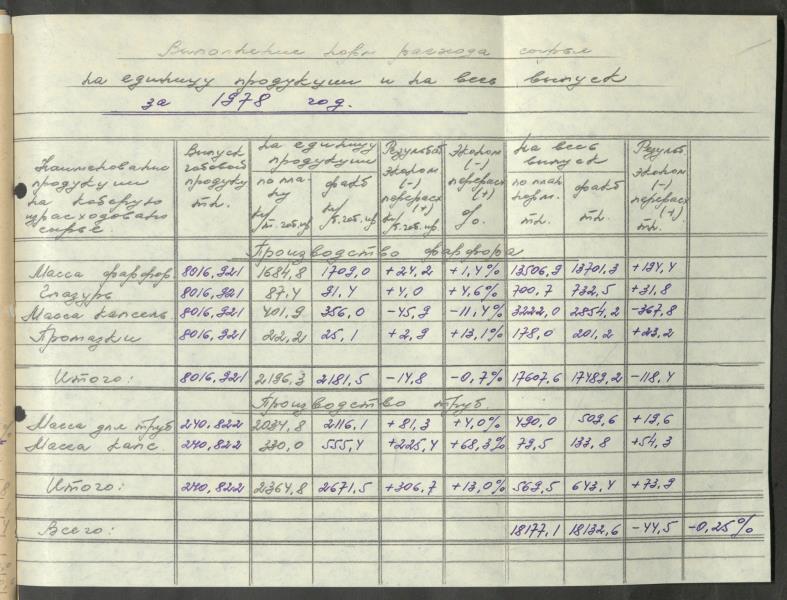 Выполнение норм расхода сырья
на единицу продукции и на весь выпуск
за 1978 год.
Наименование продукции на которую израсходовано сырье. | Выпуск готовой продукц. тн. | на единицу продукции | Результ. эконом (-) перерасх (+) кг/т.гот.пр. | Эконом (-) перерасх (+) %. | на весь выпуск | Результ эконом (-) перерасх (+) тн.
по плану кг/т.гот.пр. | факт кг/т.гот.пр. | по план. норм. тн. | факт тн.
Производство фарфора
Масса фарфор | 8016,921 | 1684,8 | 1709,0 | +24,2 | +1,4% | 13506,9 | 13701,3 | +194,4
Глазурь | 8016,921 | 87,4 | 91,4 | +4,0 | +4,6% | 700,7 | 732,5 | +31,8
Масса капсель. | 8016,921 | 401,9 | 356,0 | -45,9 | -11,4% | 3222,0 | 2854,2 | -367,8
Промазки | 8016,921 | 22,2 | 25,1 | +2,9 | +13,1% | 178,0 | 201,2 | +23,2
Итого: | 8016,921 | 2196,3 | 2181,5 | -14,8 | -0,7% | 17607,6 | 17489,2 | -118,4
Производство труб.
Масса для труб | 240,822 | 2034,8 | 2116,1 | +81,3 | +4,0% | 490,0 | 509,6 | +19,6
Масса капс. | 240,822 | 330,0 | 555,4 | +225,4 | +68,3% | 79,5 | 133,8 | +54,3
Итого: | 240,822 | 2364,8 | 2671,5 | +306,7 | +13,0% | 569,5 | 643,4 | +73,9
Всего: | 18177,1 | 18132,6 | -44,5 | -0,25%